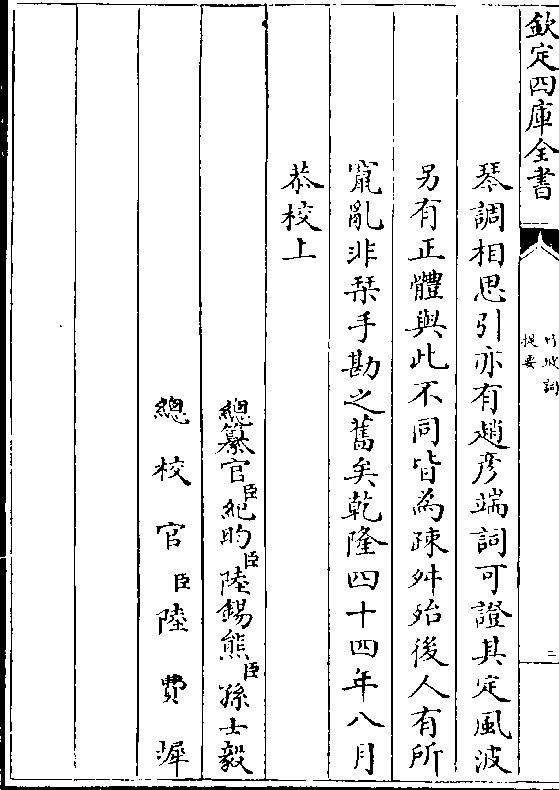 欽定四庫全書
竹坡詞
提要
三
琴調相思引亦有趙彦端詞可證其定風波
另有正體與此不同皆為疎舛殆後人有所
竄亂非栞手勘之舊矣乾隆四十四年八月
恭校上
總纂官臣紀昀臣陸錫熊臣孫士毅
總校官臣陸費墀